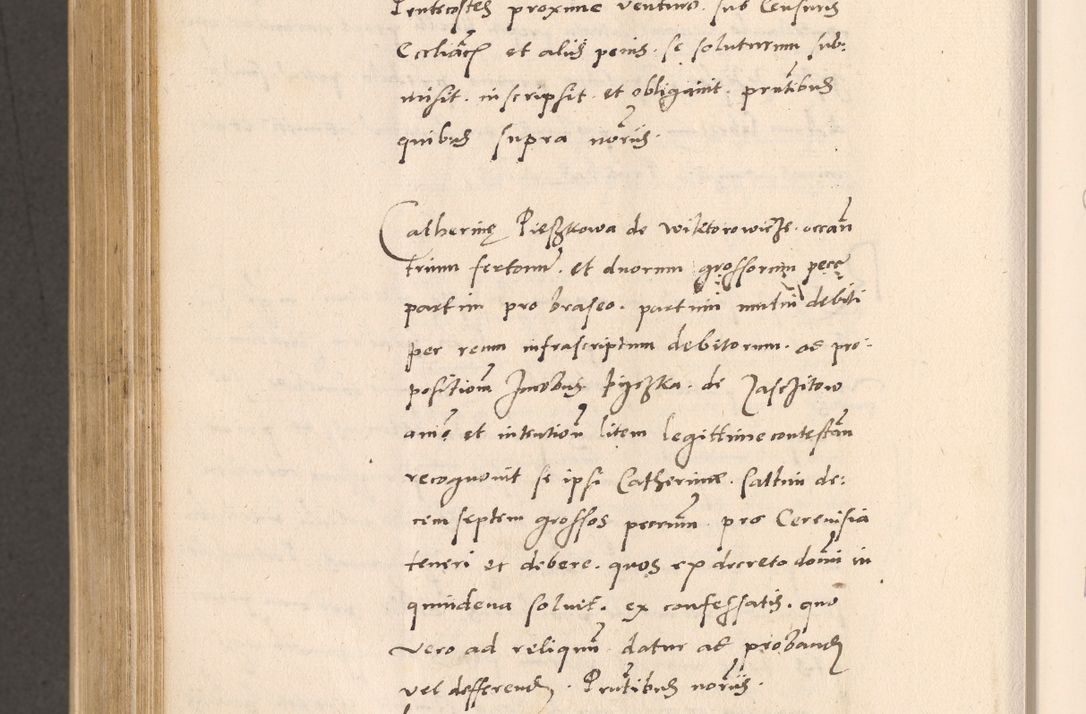 Pentecostes proxime venturo. sub Censuris
Eccliāci et aliis penis. se soluturum sub:
misit. inscripsit. et obligavit. pntibus
quibus supra notriis.
Catherinę Pieszkowa de wiktorowicze. occan
trium fertonum. et duorum grossorum pecę
partim pro braseo. partim mutui debiti
per reum infrascriptum debitorum. ac pro-
positionem Jacobus de Zaschitow
animo et intention litem legittime contestan
recognovit se ipsi Catherinae. saltim de:
cem septem grossos pecunm pro Cerevisia
teneri et debere. quos ex decreto domi in
quindena solvit. ex confessatis. quo
vero ad reliquum datur ad probandum
vel defferendum. Pntibus notriis.